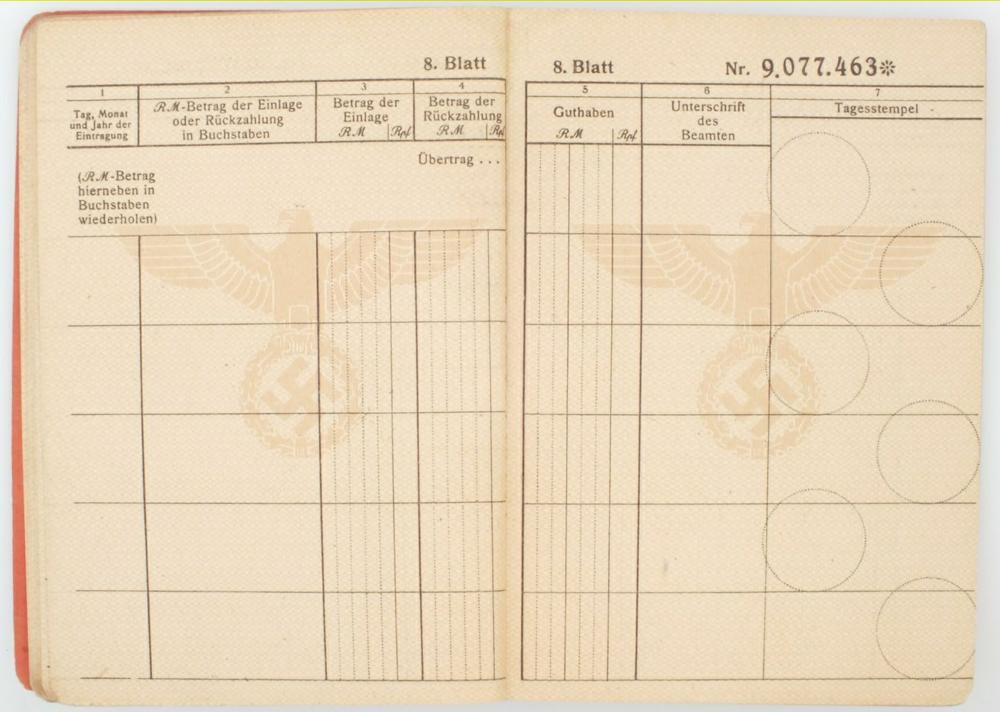 8. Blatt
1
2
3
4
Tag, Monat
und Jahr der
Eintragung
RM-Betrag der Einlage
oder Rückzahlung
in Buchstaben
Betrag der
Einlage
RM Rpf
Betrag der
Rückzahlung
RM Rpf
Übertrag ...
(RM-Betrag
hierneben in
Buchstaben
wiederholen)
8. Blatt
Nr. 9.077.463*
5
6
7
Guthaben
RM Rpf
Unterschrift
des
Beamten
Tagesstempel